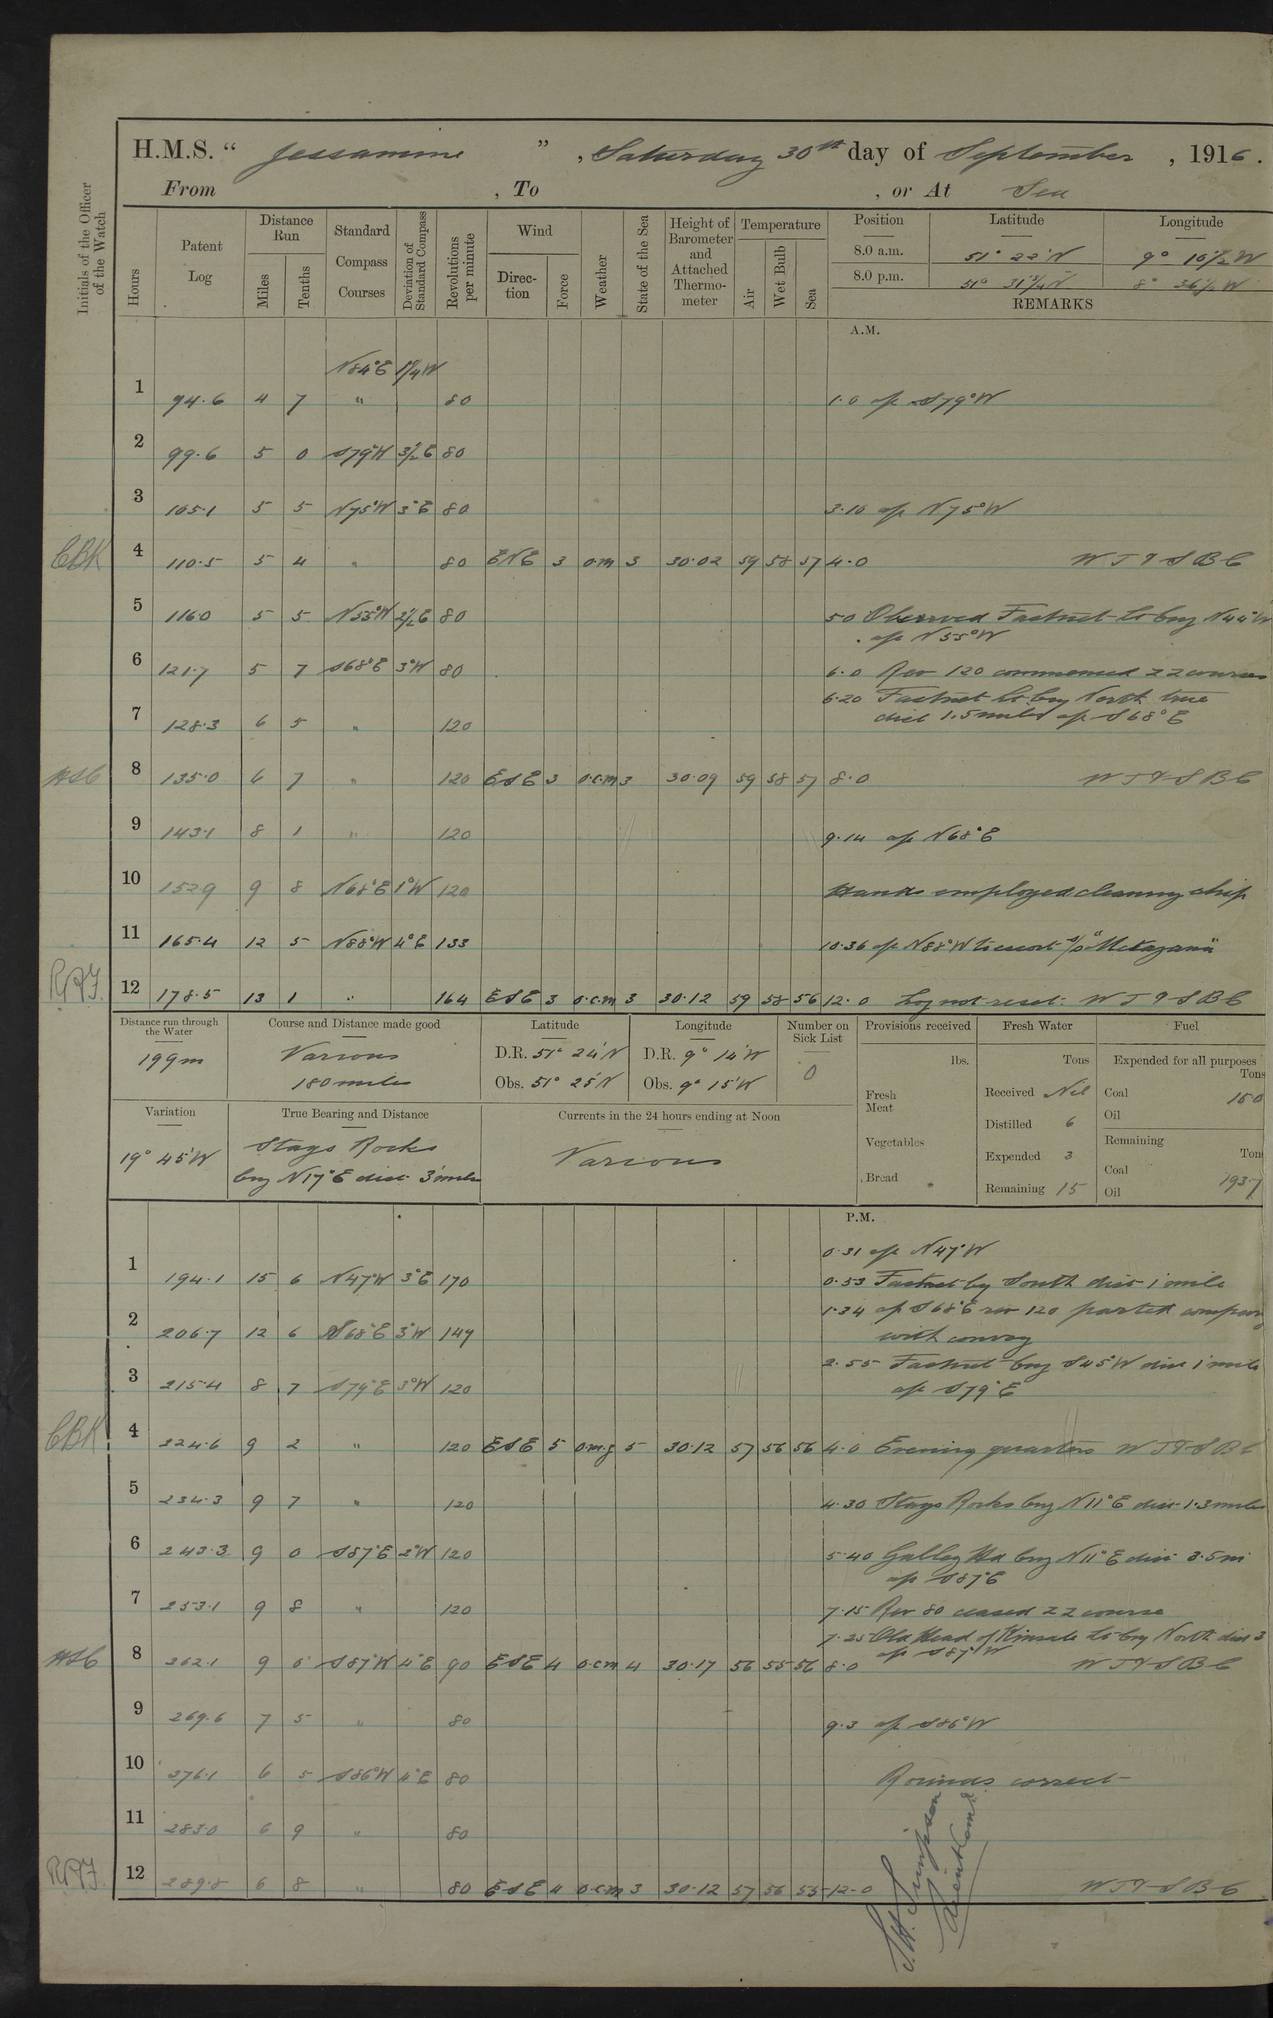 H.M.S. “ Jessamine ” , Saturday 30th day of September , 1916 .
From , To , or At Sea
Initials of the Officer of the Watch
Hours
Patent Log
Distance Run
Miles
Tenths
Standard Compass Courses
Deviation of Standard Compass
Revolutions per minute
Wind
Direction
Force
Weather
State of the Sea
Height of Barometer and Attached Thermometer
Temperature
Air
Wet Bulb
Sea
Position Latitude Longitude
8.0 a.m. 51° 22' N 9° 16½ W
8.0 p.m. 51° 31¼ N 8° 36½ W
REMARKS
A.M.
N84°E 1¼W
1 94.6 4 7 " 80 1.0 a/c S79°W
2 99.6 5 0 S79°W 3½E 80
3 105.1 5 5 N75°W 3°E 80 3.10 a/c N75°W
CBK 4 110.5 5 4 " 80 ENE 3 o.m 3 30.02 59 58 57 4.0 W T & S B C
5 116.0 5 5 N55°W 2½E 80 5.0 Observed Fastnet Lt brg N44°W
a/c N55°W
6 121.7 5 7 S68°E 3°W 80 6.0 Rev 120 commenced ZZ courses
6.20 Fastnet Lt brg North true
7 128.3 6 5 " 120 dist 1.5 miles a/c S68°E
HSC 8 135.0 6 7 " 120 ESE 3 o.c.m 3 30.09 59 58 57 8.0 W T & S B C
9 143.1 8 1 " 120 9.14 a/c N68°E
10 152.9 9 8 N68°E 1°W 120 Hands employed cleaning ship
11 165.4 12 5 N88°W 4°E 133 10.36 a/c N88°W to escort S/S "Metagama"
12 178.5 13 1 " 164 ESE 3 o.c.m 3 30.12 59 58 56 12.0 Log not reset. W T & S B C
Distance run through the Water
199m
Course and Distance made good
Various
180 miles
Latitude
D.R. 51° 24' N
Obs. 51° 25' N
Longitude
D.R. 9° 14' W
Obs. 9° 15' W
Number on Sick List
0
Provisions received
lbs.
Fresh Meat
Vegetables
Bread
Fresh Water
Tons
Received Nil
Distilled 6
Expended 3
Remaining 15
Fuel
Expended for all purposes
Tons
Coal 15.0
Oil
Remaining
Ton
Coal 193.7
Oil
Variation
19° 45' W
True Bearing and Distance
Stags Rocks
brg N17°E dist 3 miles
Currents in the 24 hours ending at Noon
Various
P.M.
0.31 a/c N47°W
1 194.1 15 6 N47°W 3°E 170 0.53 Fastnet brg South dist 1 mile
1.34 a/c S68°E rev 120 parted company
2 206.7 12 6 S68°E 3°W 147 with convoy
2.55 Fastnet brg S45°W dist 1 mile
3 215.4 8 7 S79°E 3°W 120 a/c S79°E
CBK 4 224.6 9 2 " 120 ESE 5 o.m.g 5 30.12 57 56 56 4.0 Evening quarters W T & S B C
5 234.3 9 7 " 120 4.30 Stags Rocks brg N11°E dist 1.3 miles
6 243.3 9 0 S87°E 2°W 120 5.40 Galley Hd brg N11°E dist 3.5m
a/c S87°E
7 253.1 9 8 " 120 7.15 Rev 80 ceased ZZ course
7.25 Old Head of Kinsale Lt brg North dist 3
a/c S87°W
HSC 8 262.1 9 0 S87°W 4°E 90 ESE 4 o.c.m 4 30.17 56 55 56 8.0 W T & S B C
9 269.6 7 5 " 80 9.3 a/c S86°W
10 276.1 6 5 S86°W 4°E 80 Rounds correct
11 283.0 6 9 " 80
12 289.8 6 8 " 80 ESE 4 o.c.m 3 30.12 57 56 55 12.0 W T & S B C
Simpson
Lieut Comdr